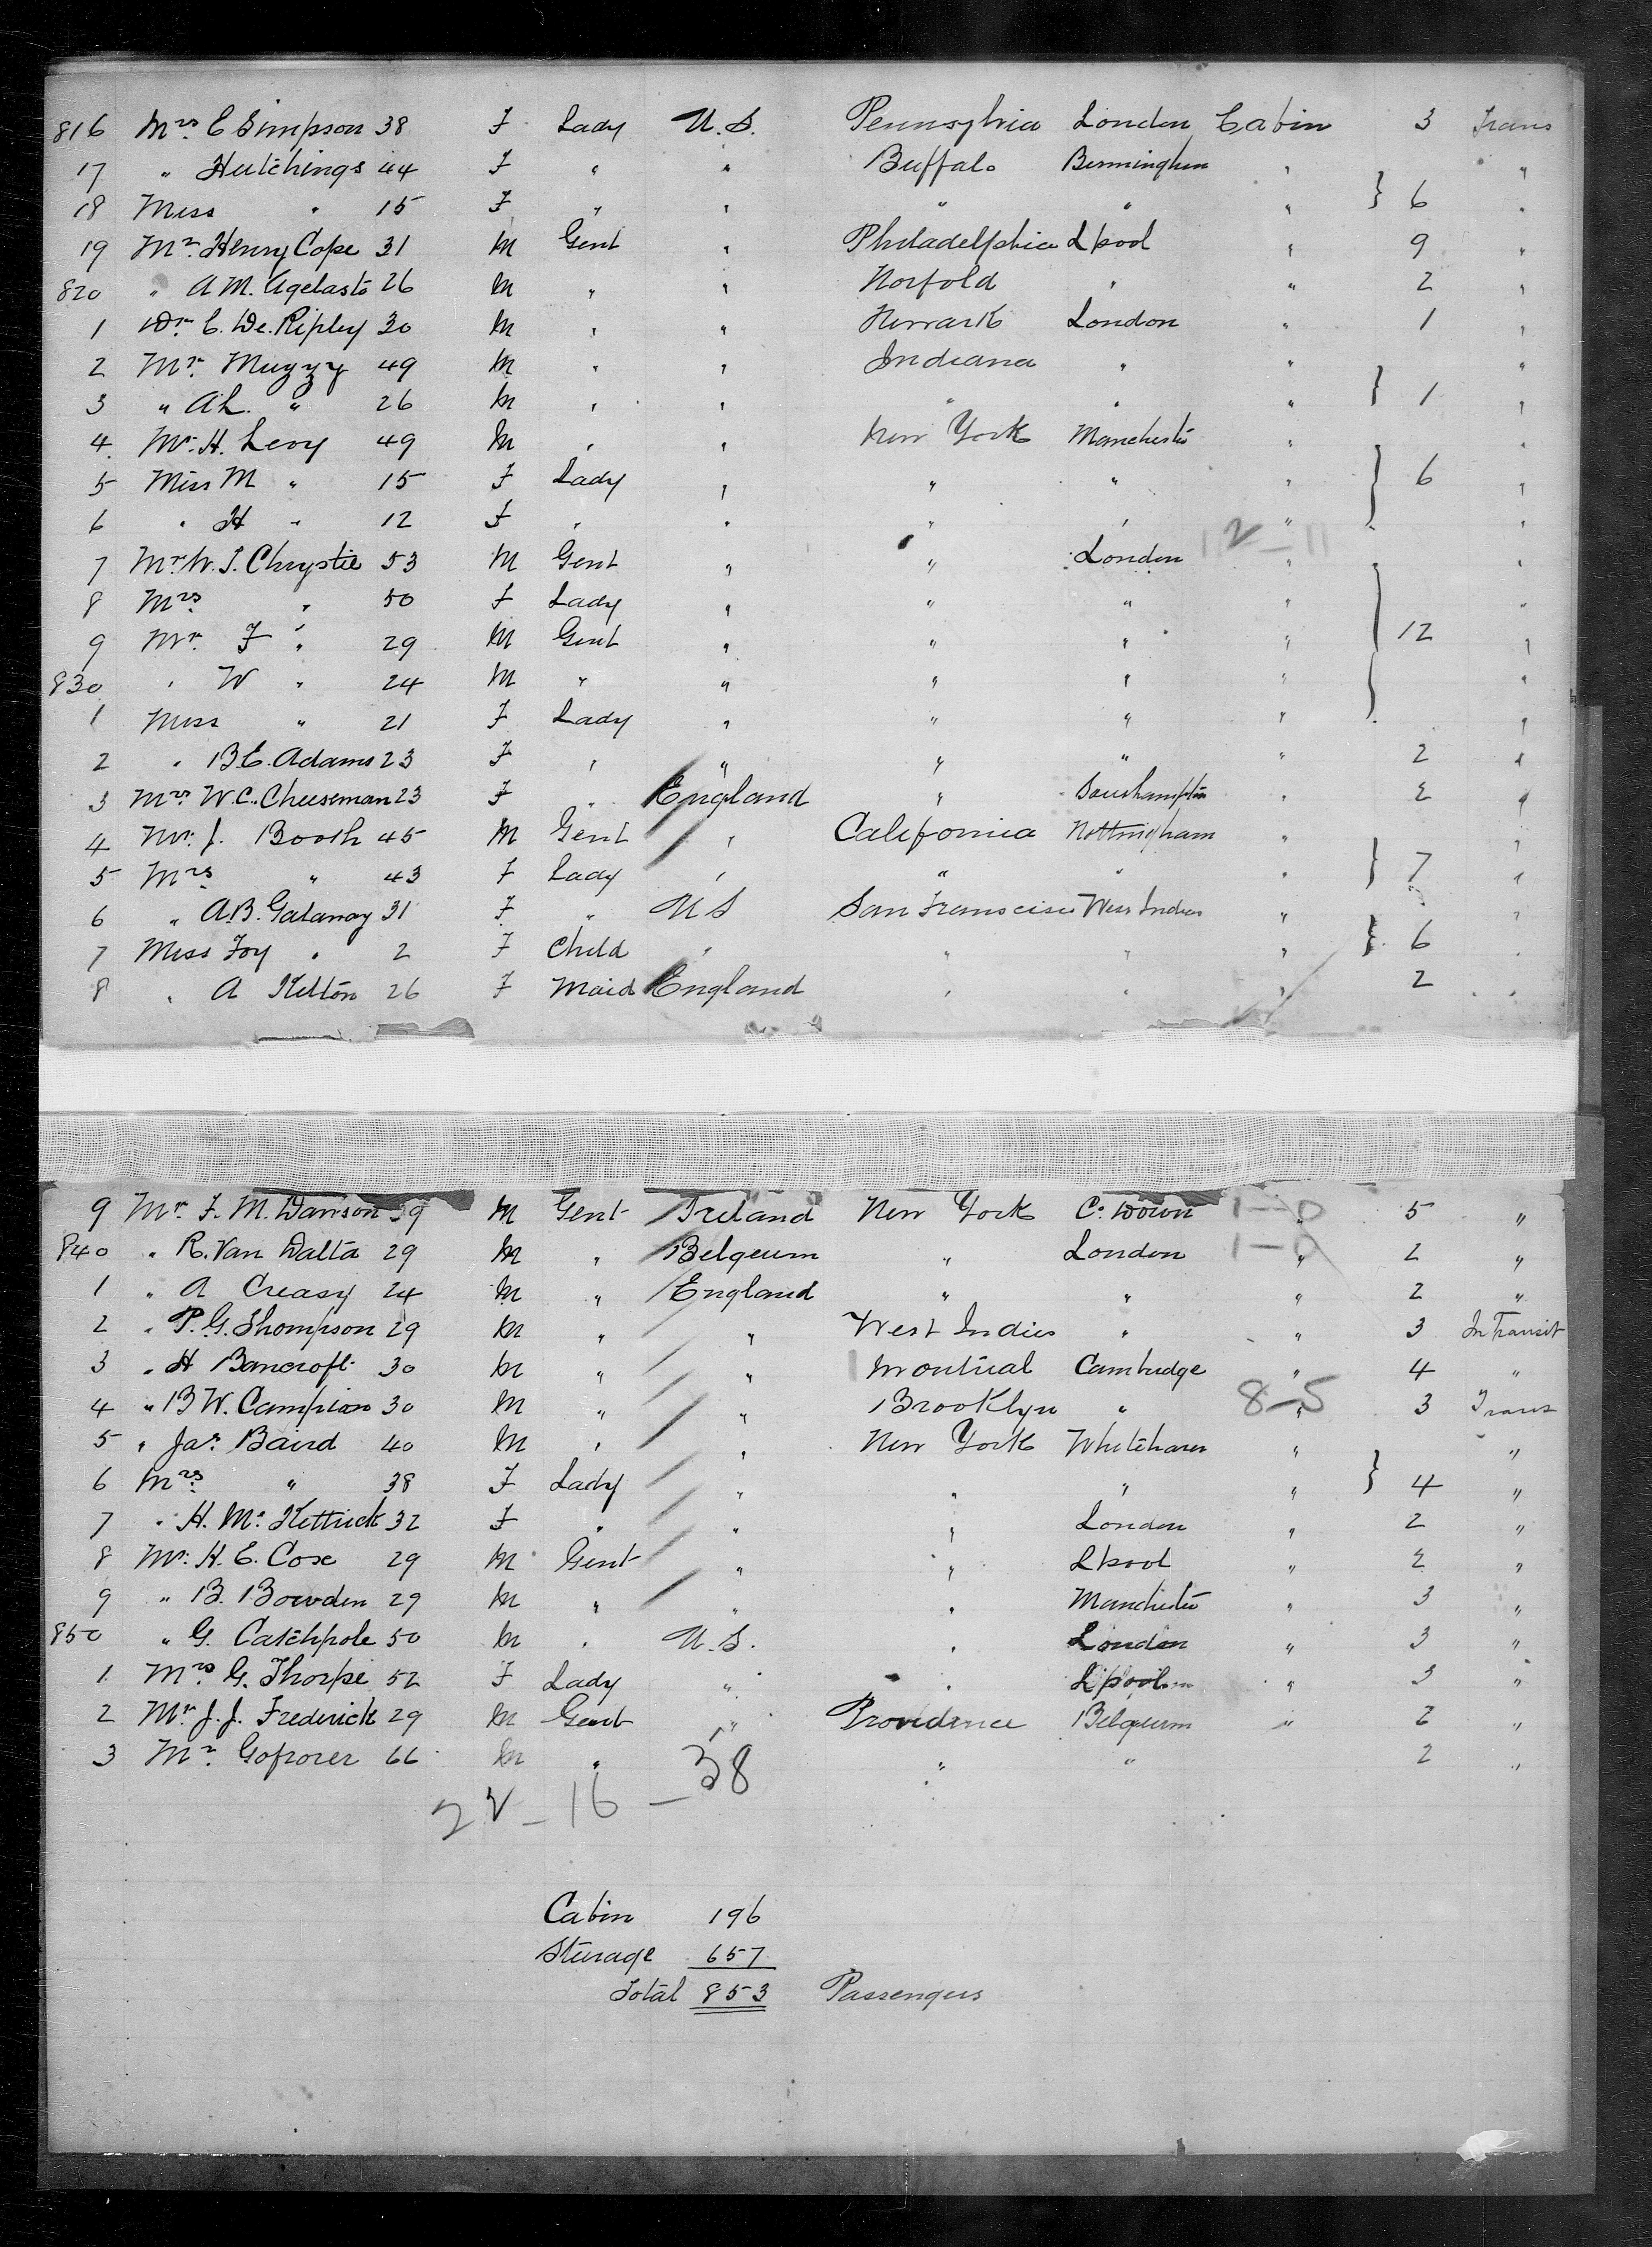 816 Mrs. C Simpson 38 F Lady U.S. Pennsylvia London Cabin 3 Trans
17 " Hutchings 44 F " " Buffalo Birmingham " "
18 Miss " 15 F " " " " " } 6 "
19 Mr. Henry Cope 31 M Gent " Philadelphia Lpool " 9 "
820 " A M. Agelasto 26 M " " Norfold " " 2 "
1 Dr. C. De. Ripley 30 M " " Newark London " 1 "
2 Mr. Muzzy 49 M " " Indiana " " "
3 " A L. " 26 M " " " " " } 1 "
4 Mr. H. Levy 49 M " " New York Manchester " "
5 Miss M " 15 F Lady " " " " } 6 "
6 " H " 12 F " " " " " "
12-11
7 Mr W. J. Chrystie 53 M Gent " " London " "
8 Mrs. " 50 F Lady " " " " "
9 Mr. F " 29 M Gent " " " " } 12 "
830 " W " 24 M " " " " " "
1 Miss " 21 F Lady " " " " "
2 " B.E. Adams 23 F " " " " " 2 "
3 Mrs. W. C. Cheeseman 23 F " England " Southampton " 2 "
4 Mr. J. Booth 45 M Gent " California Nottingham " "
5 Mrs. " 43 F Lady " " " " } 7 "
6 " A.B. Galanay 31 F " U S San Franscisco West Indies " "
7 Miss Foy " 2 F Child " " " " } 6 "
8 " A Kelton 26 F Maid England " " " 2 "
9 Mr. F. M. Dawson 39 M Gent Ireland New York Co. Down 1-0 " 5 "
840 " R. Van Dalta 29 M " Belgeum " London 1-0 " 2 "
1 " A Creasy 24 M " England " " " 2 "
2 " P. G. Thompson 29 M " " West Indies " " 3 In Transit
3 " H Bancroft 30 M " " Montreal Cambridge " 4 "
4 " B W. Campion 30 M " " Brooklyn " 8-5 " 3 Trans
5 " Jas. Baird 40 M " " New York Whitehaven " "
6 Mrs. " 38 F Lady " " " " } 4 "
7 " H. Mc. Kettrick 32 F " " " London " 2 "
8 Mr. H. E. Cox 29 M Gent " " Lpool " 2 "
9 " B. Bowden 29 M " " " Manchester " 3 "
850 " G. Catchpole 50 M " U.S. " London " 3 "
1 Mrs G. Thorpe 52 F Lady " " Lpool " 3 "
2 Mr. J. J. Frederick 29 M Gent " Providence Belgeum " 2 "
3 Mr. 66 M " " " 2 "
22-16-38
Cabin 196
Sterage 657
Total 853 Passengers